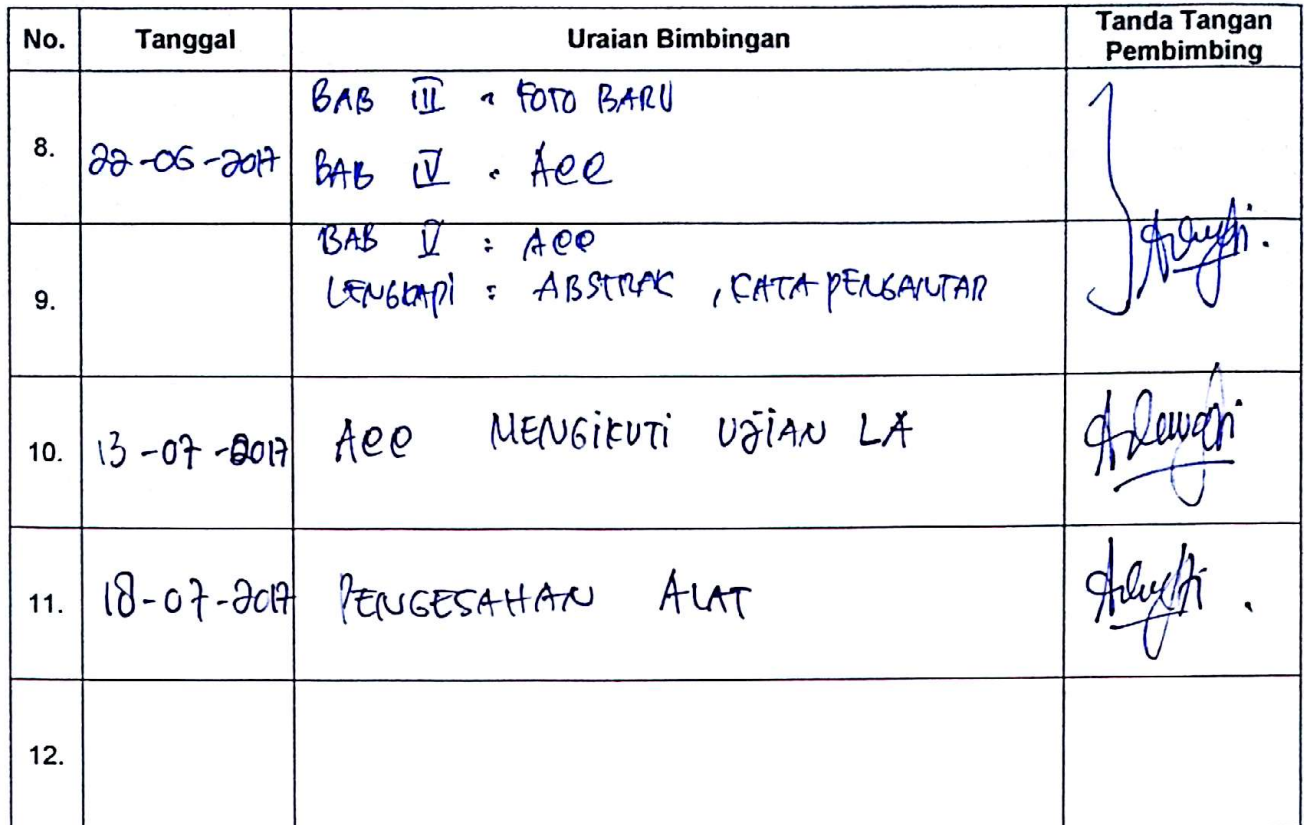 No. Tanggal Uraian Bimbingan Tanda Tangan
Pembimbing
BAB III : FOTO BARU
8. 22-06-2017 BAB IV : Acc
BAB V : Acc
9. LENGKAPi : ABSTRAK , KATA PENGANTAR
10. 13-07-2017 Acc MENGiKUTi UJiAN LA
11. 18-07-2017 PENGESAHAN ALAT
12.